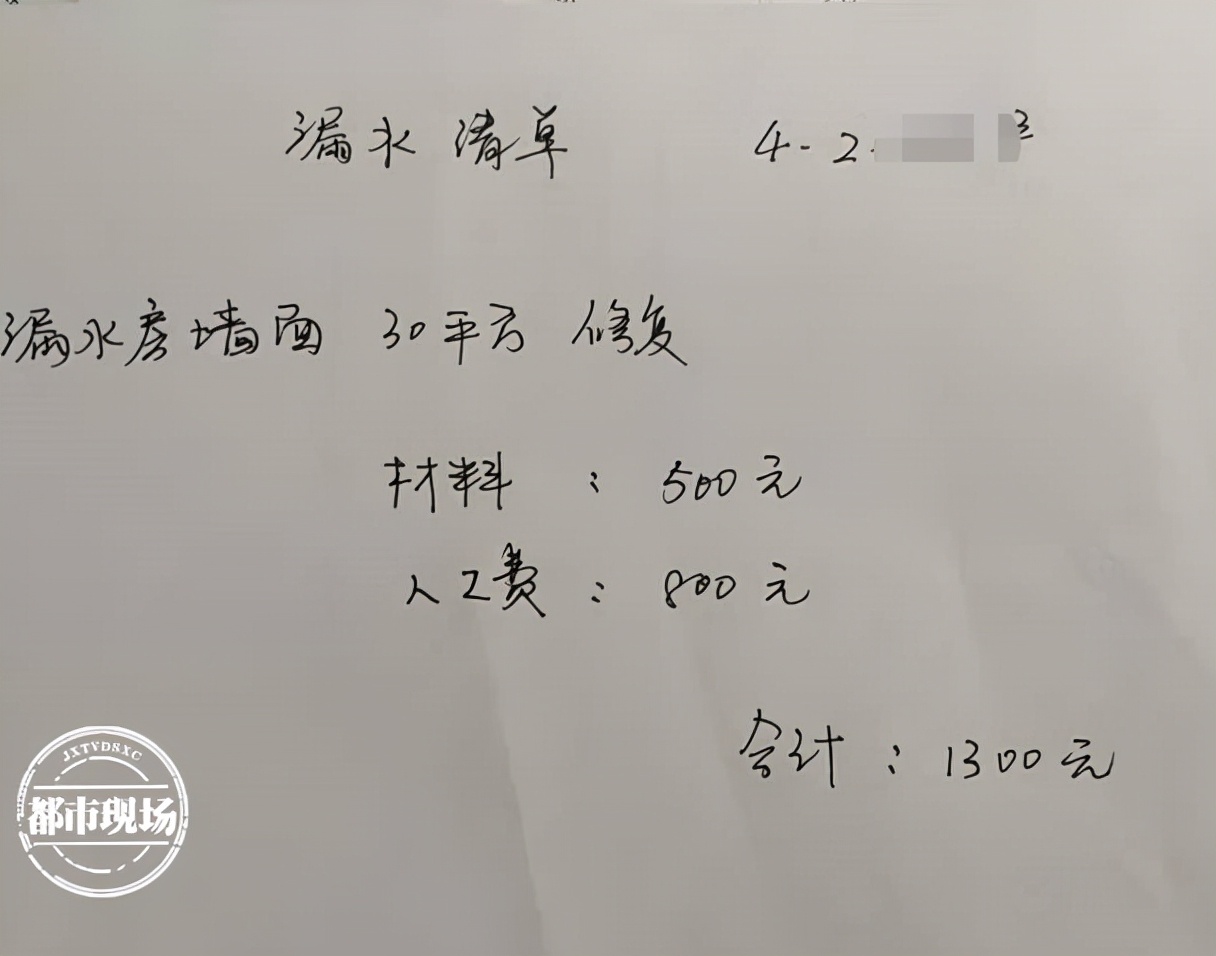 漏水清单 4-2- 3
漏水房墙面 30平方 修复
材料 : 500元
人工费 : 800元
合计 : 1300元
JXTVDSXC
都市现场